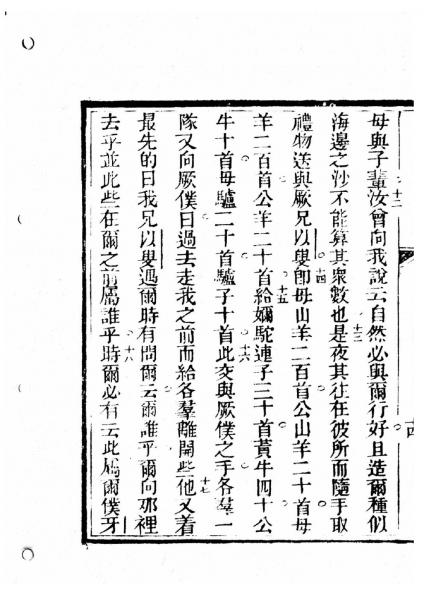 母與子輩十二汝曾向我說云自然必與爾行好且造爾種似
海邊之沙不能算其衆數也十三是夜其徃在彼所而隨手取
禮物送與厥兄以叟十四即母山羊二百首公山羊二十首母
羊二百首公羊二十首十五給嬭駝連子三十首黃牛四十公
牛十首母驢二十首驢子十首十六此交與厥僕之手各羣一
隊又向厥僕曰過去走我之前而給各羣離開些十七他又着
最先的曰我兄以叟遇爾時有問爾云爾誰乎爾向那裡
去乎並此些在爾之前屬誰乎十八時爾必有云此屬爾僕牙